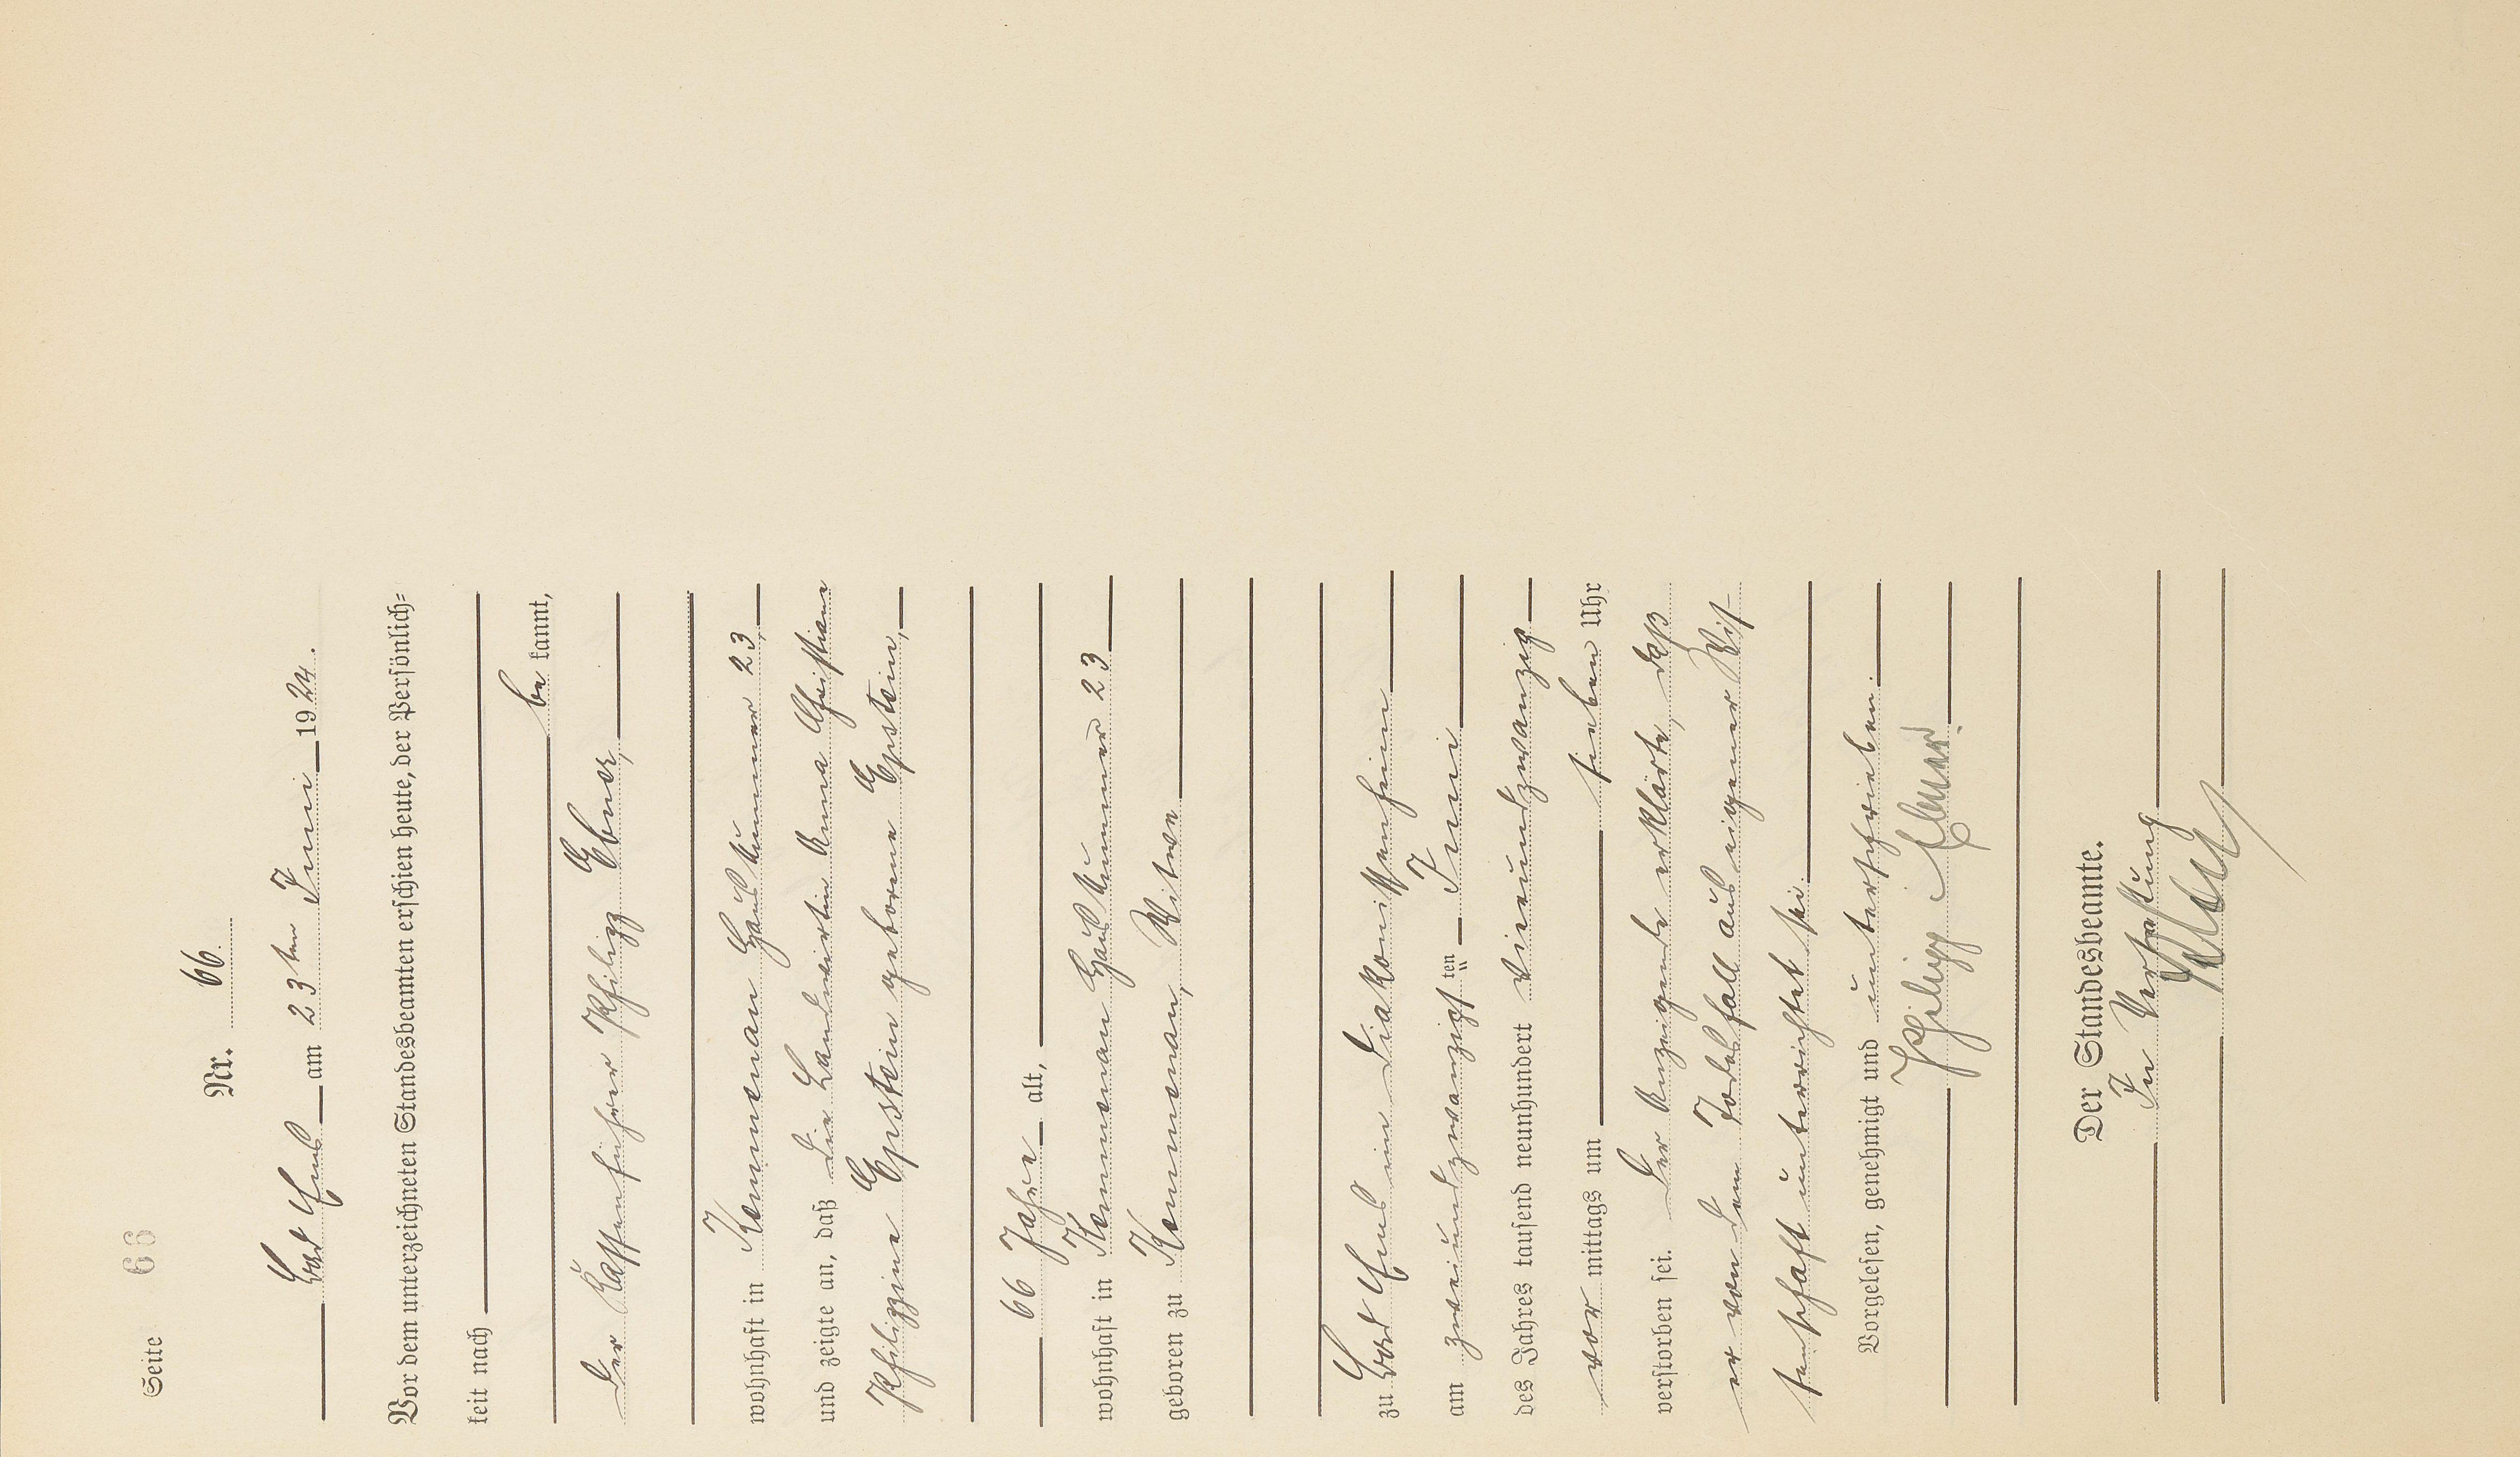 Seite 66
Nr. 66.
Bad Ems am 23ten Juni 1924.
Vor dem unterzeichneten Standesbeamten erschien heute, der Persönlich=
keit nach
be kannt,
der Kassenführer Philipp Ebner,
wohnhaft in Kemmenau Hausnummer 23,
und zeigte an, daß die Landwirtin Anna Christiane
Philippine Epstein geborene Epstein,
66 Jahre alt,
wohnhaft in Kemmenau Hausnummer 23
geboren zu Kemmenau, Witwe
zu Bad Ems im Diakonissenheim
am zweiundzwanzigsten Juni
des Jahres tausend neunhundert vierundzwanzig
vor mittags um sieben Uhr
verstorben sei. Der Anzeigende erklärte, daß
er von dem Todesfall aus eigener Wis-
senschaft unterrichtet sei.
Vorgelesen, genehmigt und unterschrieben.
Philipp Ebner.
Der Standesbeamte.
In Vertretung